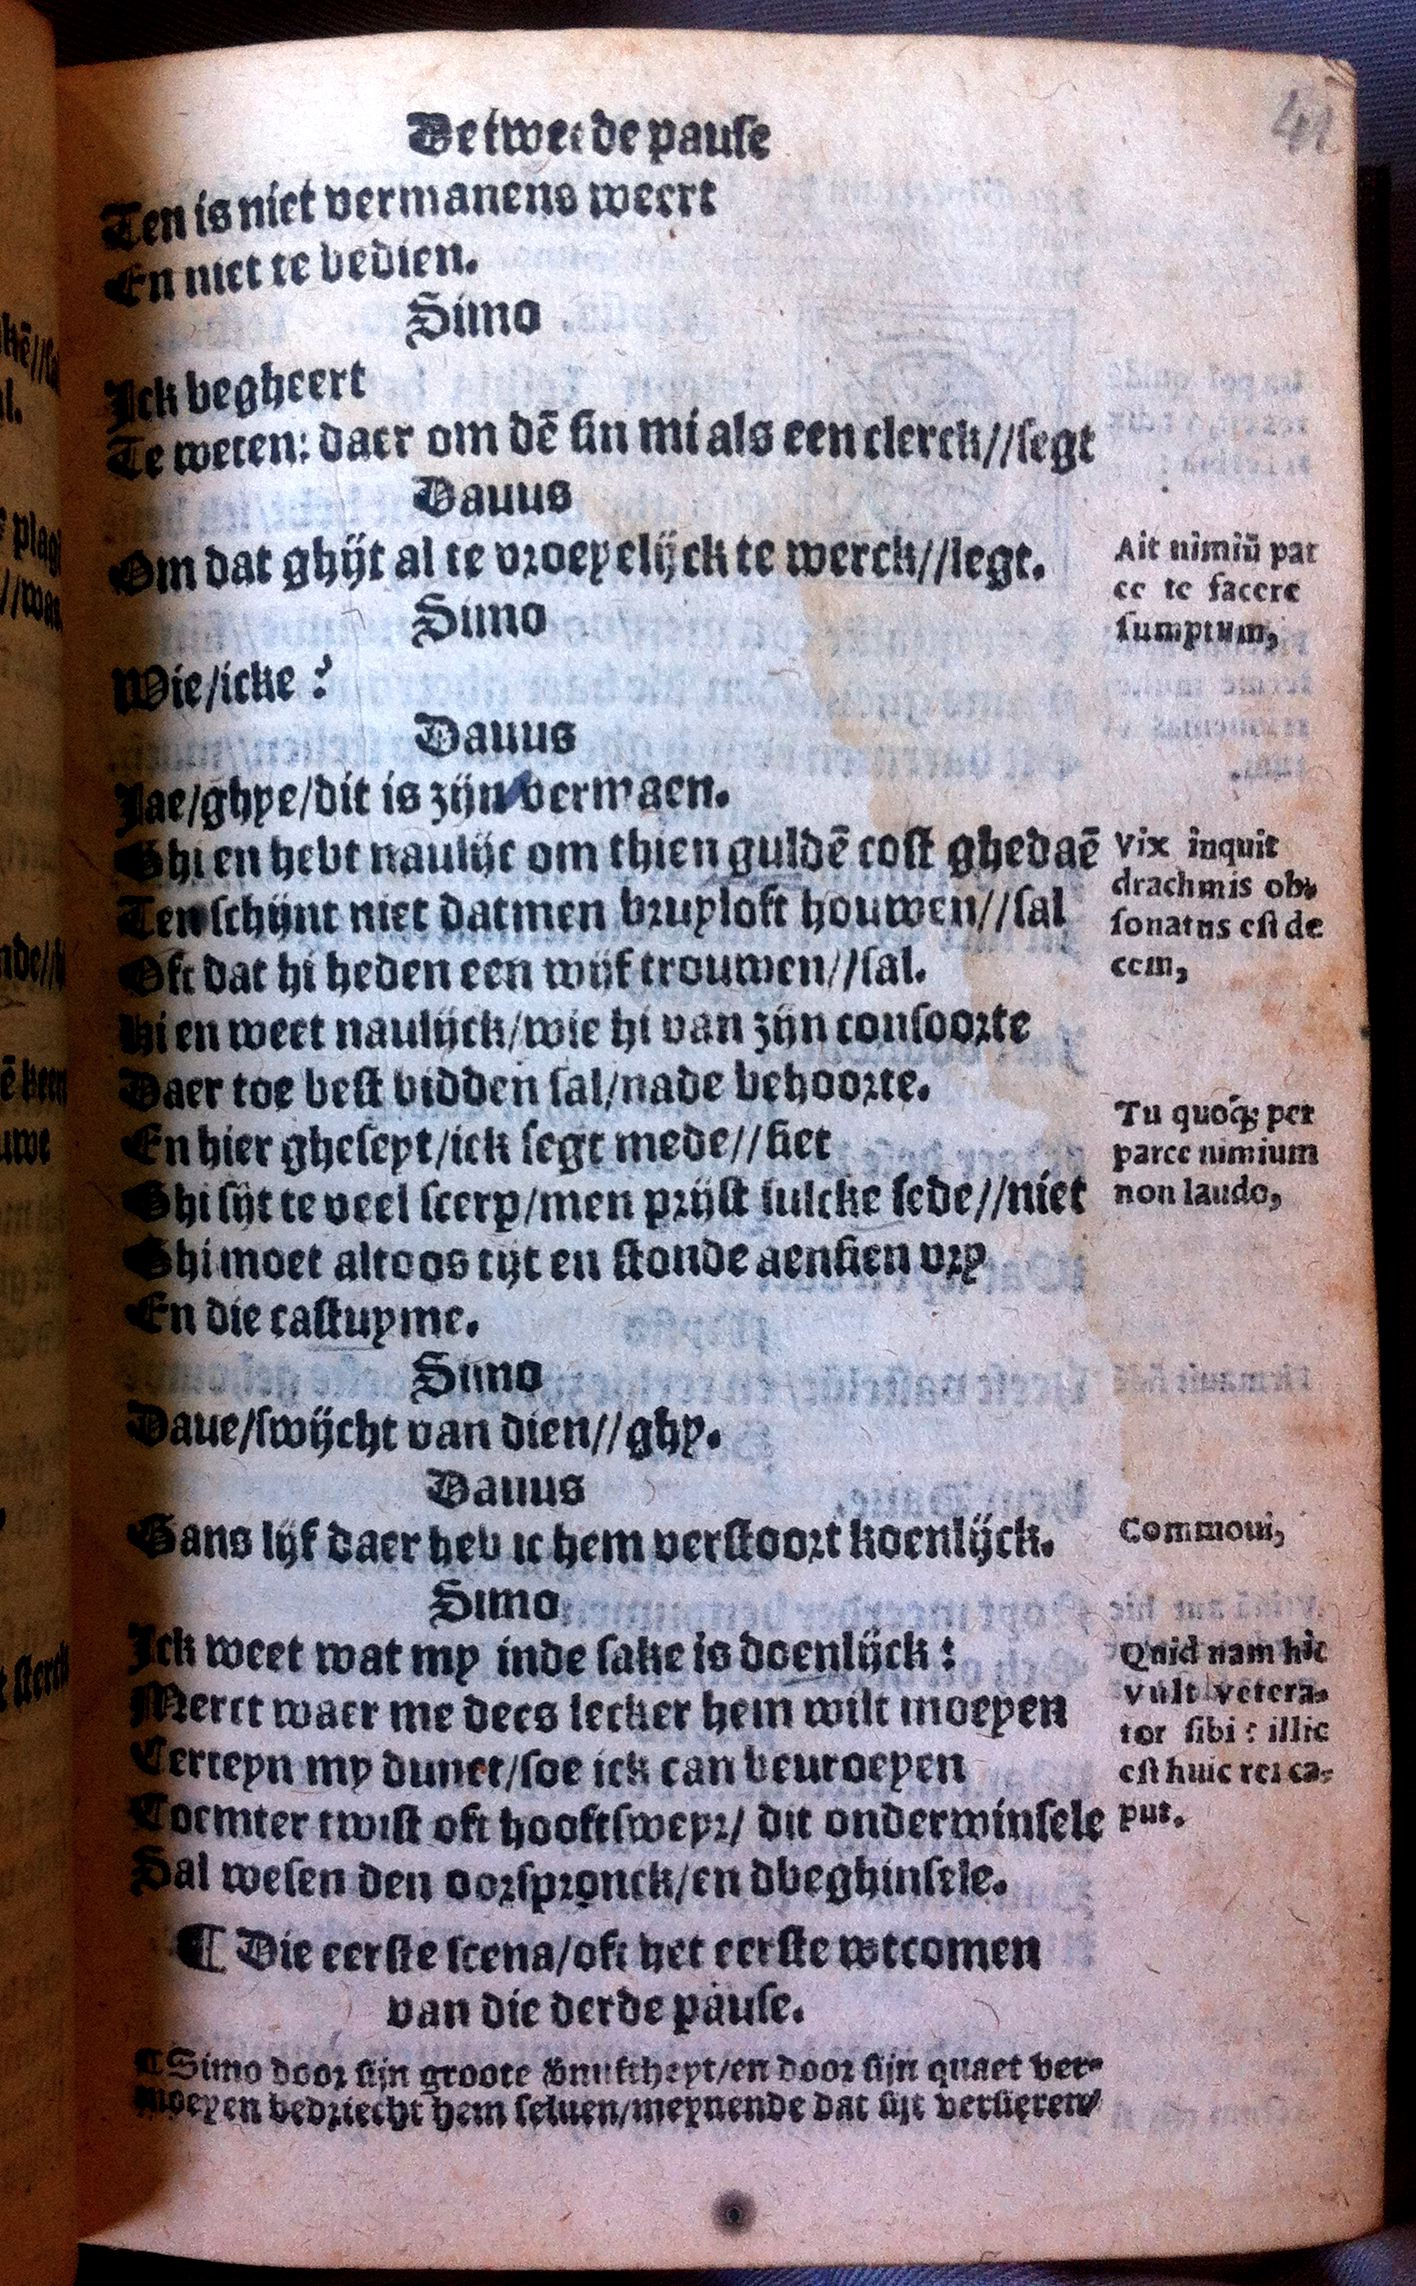 41
De tweede pause
Ten is niet vermanens weert
En niet te bedien.
Simo
Ick begheert
Te weten: daer om dē sin mi als een clerck//segt
Dauus
Om dat ghijt al te vroeyelijck te werck//legt.
Simo
Wie/icke?
Dauus
Jae/ghye/dit is zijn vermaen.
Ghi en hebt naulijc om thien guldē cost ghedaē
Ten schijnt niet datmen bruyloft houwen//sal
Oft dat hi heden een wijf trouwen//sal.
Hi en weet naulijck/wie hi van zijn consoorte
Daer toe best bidden sal/nade behoorte.
En hier gheseyt/ick segt mede//siet
Ghi sijt te veel scerp/men prijst sulcke sede//niet
Ghi moet altoos tijt en stonde aensien vry
En die castuyme.
Simo
Daue/swijcht van dien//ghy.
Dauus
Gans lijf daer heb ic hem verstoort koenlijck.
Simo
Ick weet wat my inde sake is doenlijck:
Merct waer me dees lecker hem wilt moeyen
Certeyn my dunct/soe ick can bevroeyen
Coemter twist oft hooftsweyr/ dit onderwinsele
Sal wesen den oorspronck/en dbeghinsele.
¶ Die eerste scena/oft het eerste wtcomen
van die derde pause.
¶Simo door sijn groote vruftheyt/en door sijn quaet ver-
moeyen bedriecht hem seluen/meynende dat sijt versieren/
Ait nimiū par
ce te facere
sumptum,
Vix inquit
drachmis ob-
sonatus est de
cem,
Tu quoq; per
parce nimium
non laudo,
Commoui,
Quid nam hic
vult vetera-
tor sibi: illic
est huic rei ca-
put.